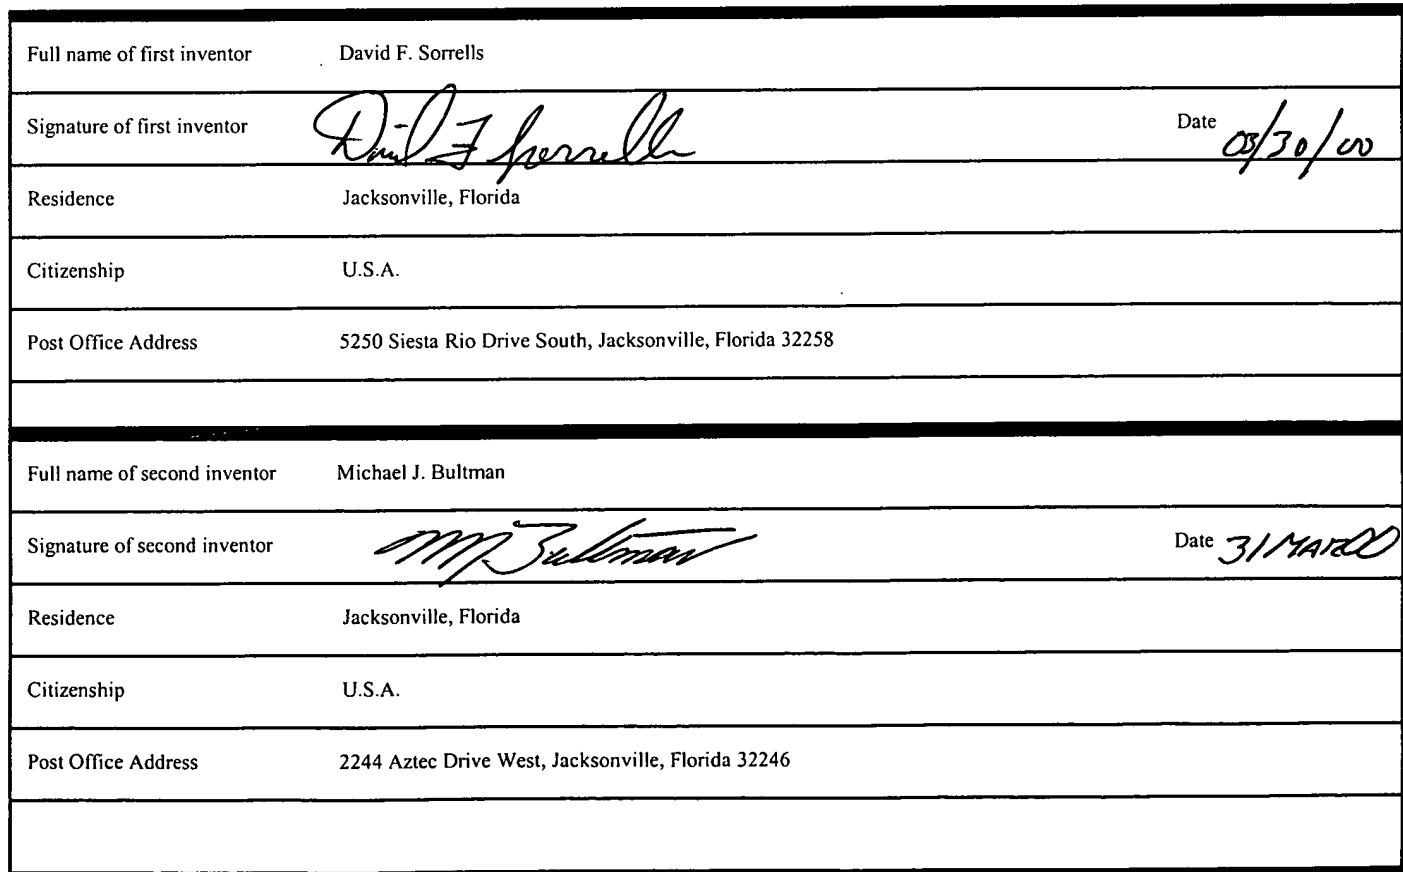 Full name of first inventor David F. Sorrells
Signature of first inventor David F Sorrells Date 03/30/00
Residence Jacksonville, Florida
Citizenship U.S.A.
Post Office Address 5250 Siesta Rio Drive South, Jacksonville, Florida 32258
Full name of second inventor Michael J. Bultman
Signature of second inventor MJ Bultman Date 31 MAR 00
Residence Jacksonville, Florida
Citizenship U.S.A.
Post Office Address 2244 Aztec Drive West, Jacksonville, Florida 32246